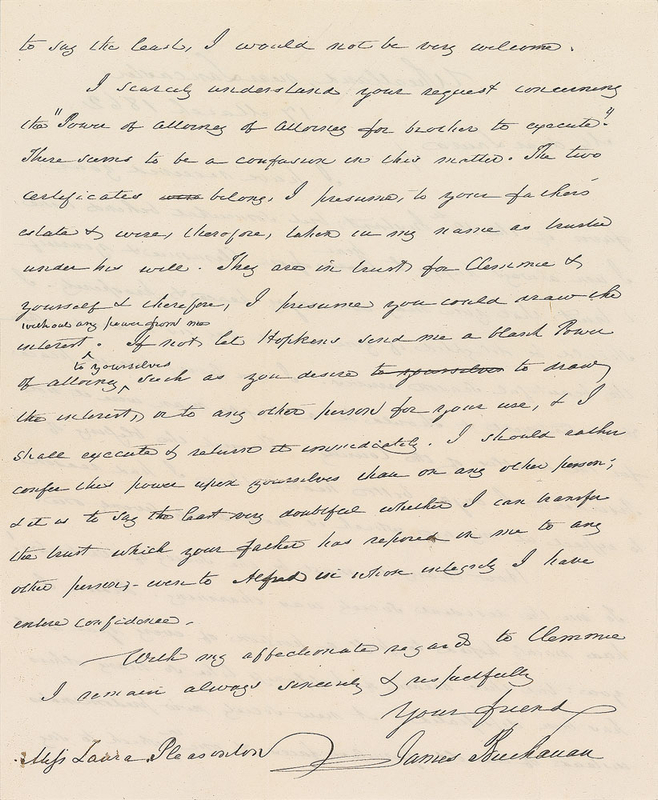 to say the least, I would not be very welcome.
I scarcely understand your request concerning
the "Power of attorney of attorney for brother to execute."
There seems to be a confusion in this matter. The two
certificates were belong, I presume, to your father's
estate & were, therefore, taken in my name as trustee
under his will. They are in trust for Clemmie &
yourself & therefore, I presume you could draw the
without any power from me
interest. If not let Hopkins send me a blank Power
to yourselves
of attorney, such as you desire to yourselves to draw
the interest, or to any other person for your use, & I
shall execute & return it immediately. I should rather
confer this power upon yourselves than on any other person;
& it is to say the least very doubtful whether I can transfer
the trust which your father has reposed in me to any
other person, - even to Alfred in whose integrity I have
entire confidence.
With my affectionate regards to Clemmie
I remain always sincerely & respectfully
Your friend
Miss Laura Pleasonton James Buchanan